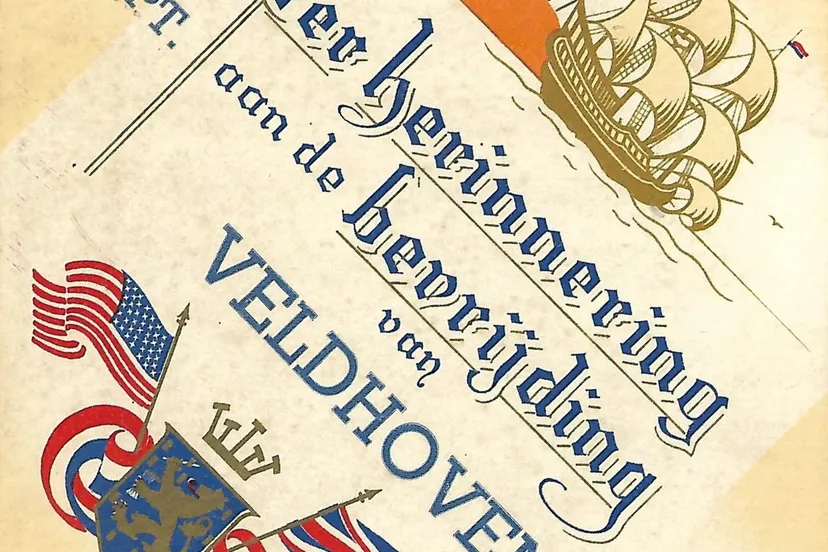 PT.
ter herinnering
aan de bevrijding
van
VELDHOVEN